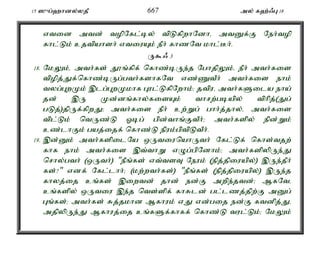 15 ஸுப்ஹானல்லதீ 667 அல் கஹ்ஃபு 18
எவனை அவன் வழிகேட்டில் விடுகிறானோ, அவனுக்கு நேர்வழி
காட்டும் உதவியாளர் எவரையும் நீர் காணவே மாட்டீர்.
ருகூஃ 3
18. மேலும், அவர்கள் தூங்கிக் கொண்டிருந்த போதிலும், நீர் அவர்களை
விழித்துக்கொண்டிருப்பவர்களாகவே எண்ணுவீர் அவர்களை நாம்
வலப்புறமும் இடப்புறமுமாக புரட்டுகிறோம்; தவிர, அவர்களுடைய நாய்
தன் இரு முன்னங்கால்களையும் வாசற்படியில் விரித்(துப்
படுத்)திருக்கிறது; அவர்களை நீர் உற்றுப் பார்த்தால், அவர்களை
விட்டும் வெருண்டு ஓடிப் பின்வாங்குவீர்; அவர்களில் நின்றும்
உண்டாகும் பயத்தைக் கொண்டு நிரம்பிவிடுவீர்.
19. இன்னும் அவர்களிடையே ஒருவரையொருவர் கேட்டுக் கொள்வதற்
காக நாம் அவர்களை இவ்வாறு எழுப்பினோம்; அவர்களிலிருந்து
சொல்பவர் (ஒருவர்) "நீங்கள் எவ்வளவு நேரம் (நித்திரையில்) இருந்தீர்
கள்?" எனக் கேட்டார்; (மற்றவர்கள்) "நீங்கள் (நித்திரையில்) இருந்த
காலத்தை உங்கள் இறைவன் தான் நன்கு அறிந்தவன்; ஆகவே,
உங்களில் ஒருவரை இந்த வெள்ளிக் காசுடன் பட்டணத்திற்கு அனுப்
புங்கள்; அவர்கள் சுத்தமான ஆகாரம் எது என்பதை நன்கு கவனித்து,
அதிலிருந்து ஆகாரத்தை உங்களுக்காகக் கொண்டு வரட்டும்; மேலும்